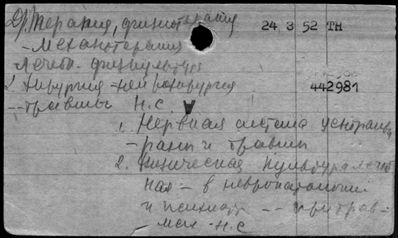 Терапия, физиотерапия 24 3 52 ТН
- механотерапия
лечебн. физкультура
2. Хирургия - нейрохирургия 442981
-- травмы Н.С.
1. Нервная система центральн
- раны и травмы
2. Физическая культура лечеб
ная - в невропатологии
и психиатр -- при трав-
мах Н.С